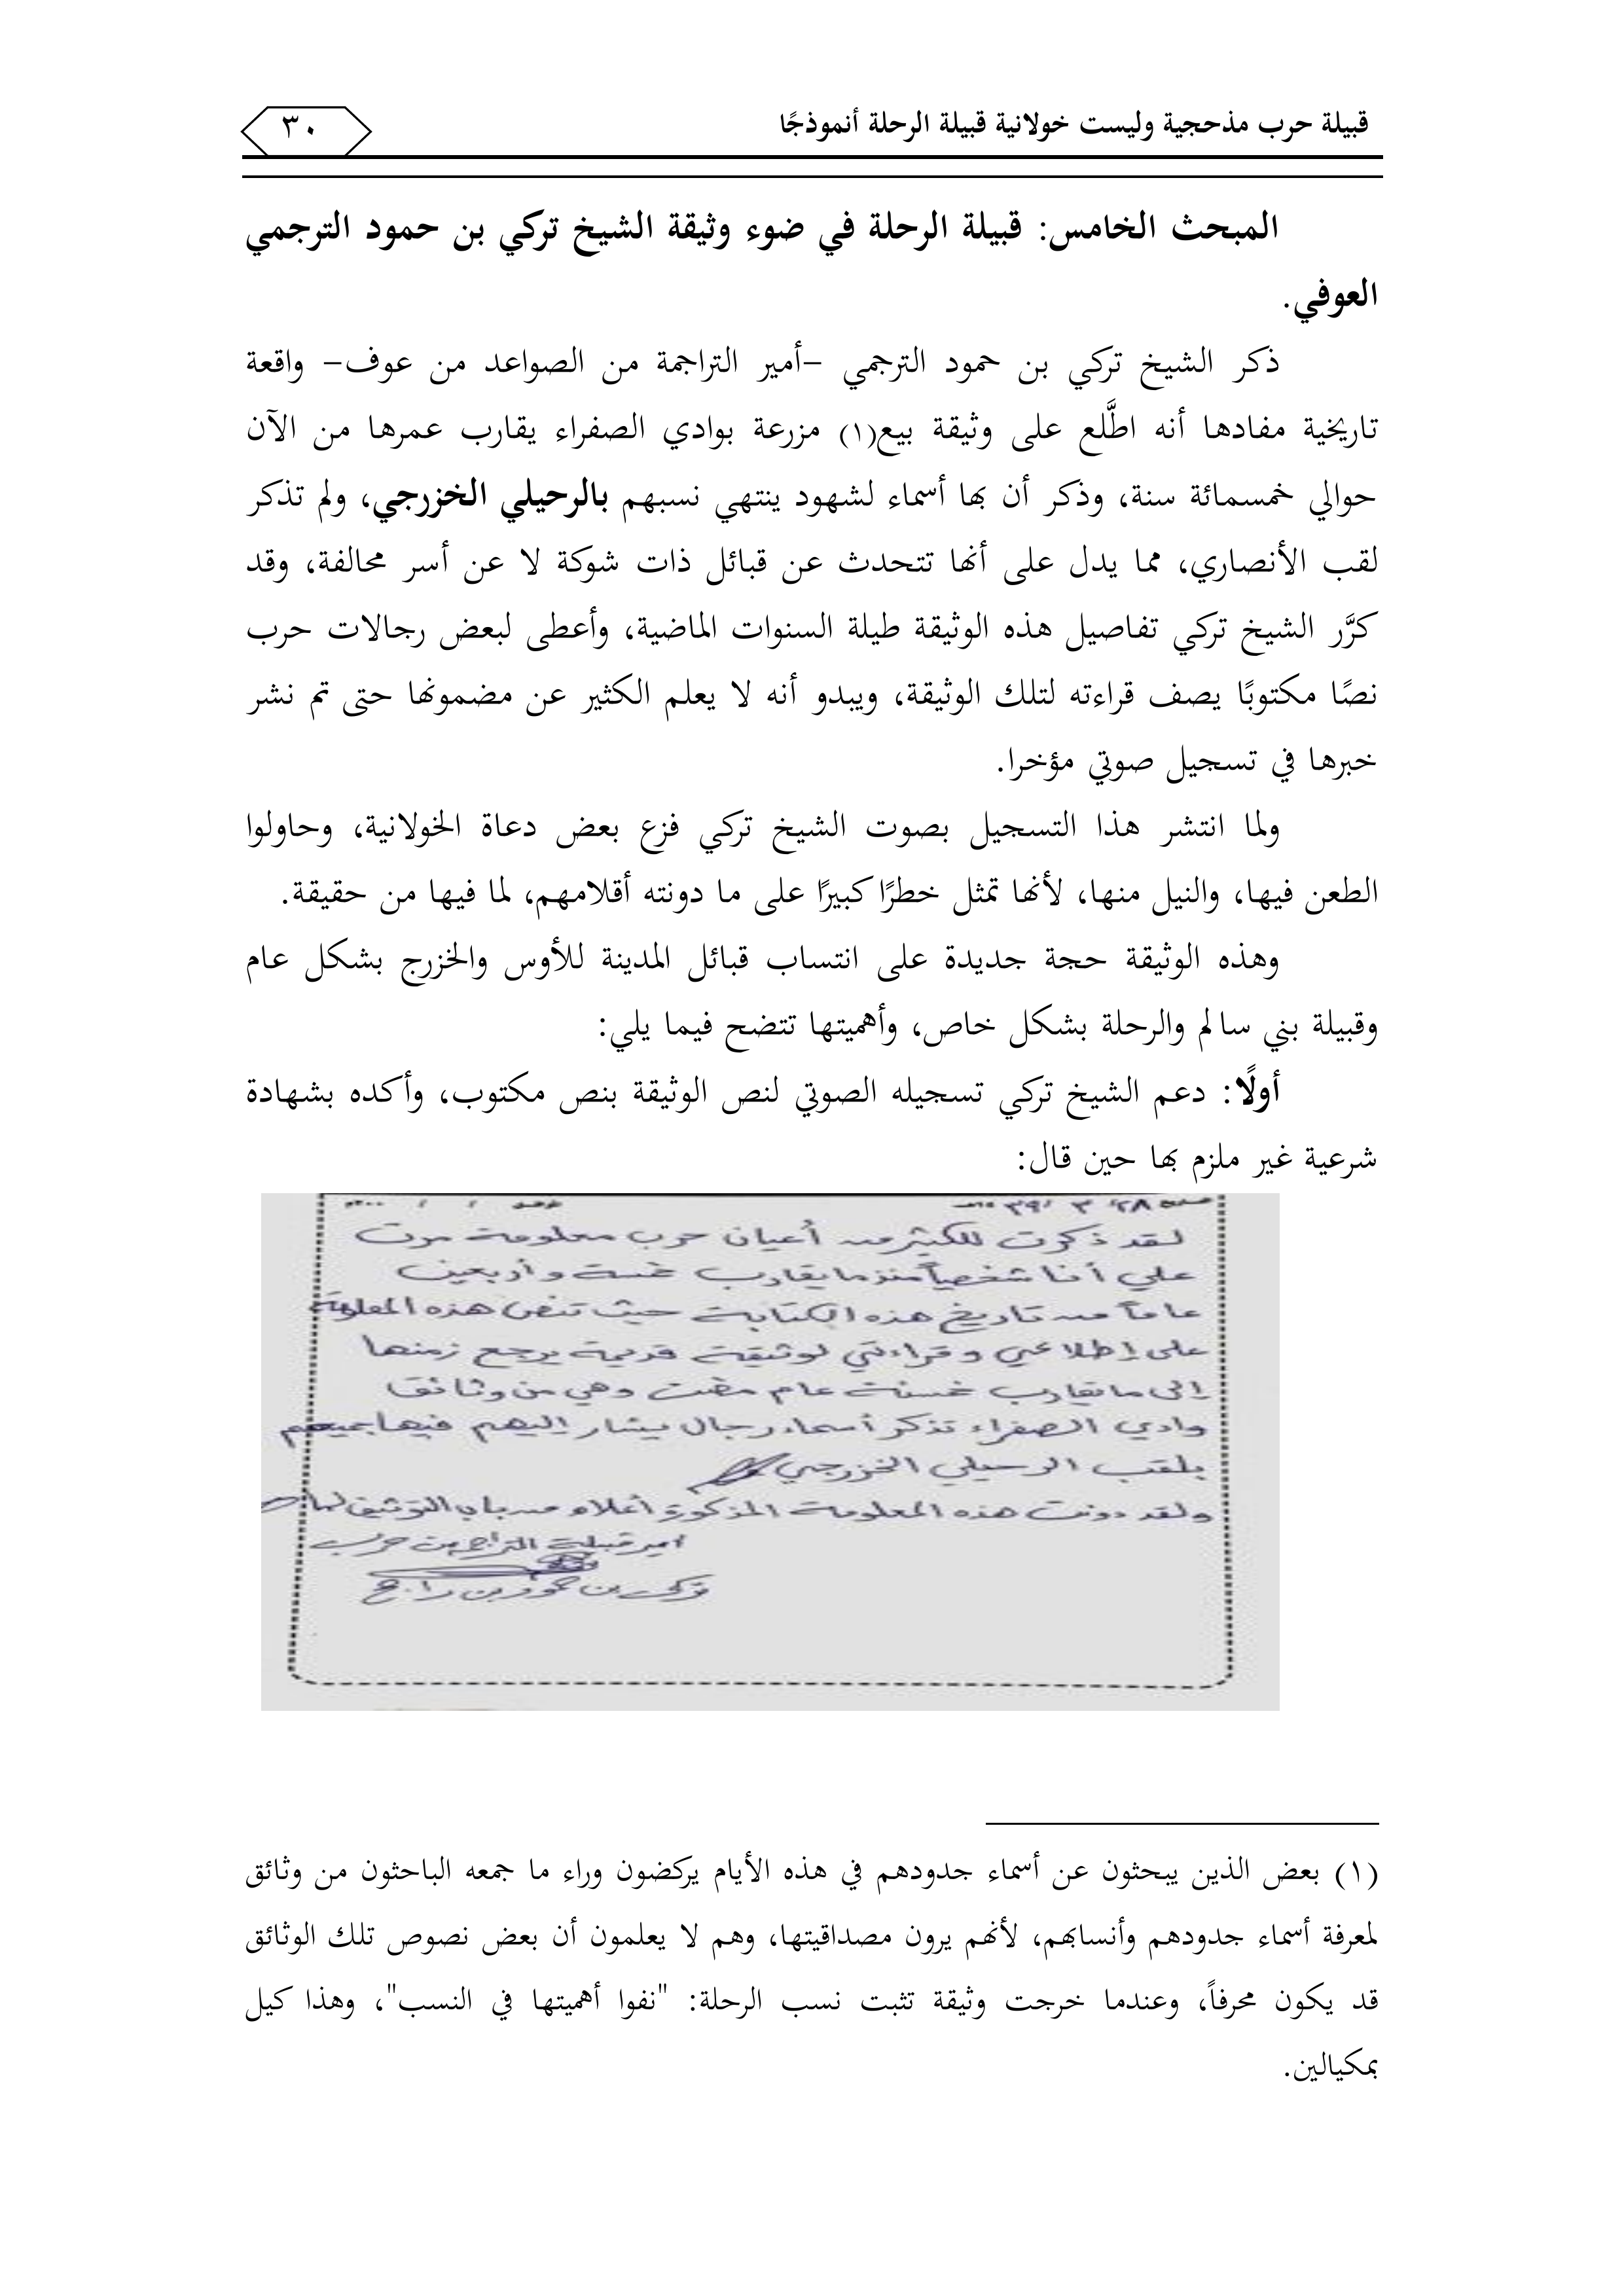 قبيلة حرب مذحجية وليست خولانية قبيلة الرحلة أنموذجًا
٣٠
المبحث الخامس: قبيلة الرحلة في ضوء وثيقة الشيخ تركي بن حمود الترجمي
العوفي.
ذكر الشيخ تركي بن حمود الترجمي –أمير التراجمة من الصواعد من عوف– واقعة
تاريخية مفادها أنه اطَّلع على وثيقة بيع(١) مزرعة بوادي الصفراء يقارب عمرها من الآن
حوالي خمسمائة سنة، وذكر أن بها أسماء لشهود ينتهي نسبهم بالرحيلي الخزرجي، ولم تذكر
لقب الأنصاري، مما يدل على أنها تتحدث عن قبائل ذات شوكة لا عن أسر محالفة، وقد
كرَّر الشيخ تركي تفاصيل هذه الوثيقة طيلة السنوات الماضية، وأعطى لبعض رجالات حرب
نصًا مكتوبًا يصف قراءته لتلك الوثيقة، ويبدو أنه لا يعلم الكثير عن مضمونها حتى تم نشر
خبرها في تسجيل صوتي مؤخرا.
ولما انتشر هذا التسجيل بصوت الشيخ تركي فزع بعض دعاة الخولانية، وحاولوا
الطعن فيها، والنيل منها، لأنها تمثل خطرًا كبيرًا على ما دونته أقلامهم، لما فيها من حقيقة.
وهذه الوثيقة حجة جديدة على انتساب قبائل المدينة للأوس والخزرج بشكل عام
وقبيلة بني سالم والرحلة بشكل خاص، وأهميتها تتضح فيما يلي:
أولًا: دعم الشيخ تركي تسجيله الصوتي لنص الوثيقة بنص مكتوب، وأكده بشهادة
شرعية غير ملزم بها حين قال:
لقد ذكرت للكثير من أعيان حرب معلومة مرت
علي أنا شخصياً منذ ما يقارب خمسة وأربعين
عاماً من تاريخ هذه الكتابة حيث تنص هذه المعلومة
على إطلاعي وقراءتي لوثيقة قديمة يرجع زمنها
إلى ما يقارب خمسمئة عام مضت وهي من وثائق
وادي الصفراء تذكر أسماء رجال يشار إليهم فيها جميعهم
بلقب الرحيلي الخزرجي
ولقد دونت هذه المعلومة المذكورة أعلاه من باب التوثيق
أمير قبيلة التراجم من حرب
تركي بن حمود بن راجح
(١) بعض الذين يبحثون عن أسماء جدودهم في هذه الأيام يركضون وراء ما جمعه الباحثون من وثائق
لمعرفة أسماء جدودهم وأنسابهم، لأنهم يرون مصداقيتها، وهم لا يعلمون أن بعض نصوص تلك الوثائق
قد يكون محرفاً، وعندما خرجت وثيقة تثبت نسب الرحلة: "نفوا أهميتها في النسب"، وهذا كيل
بمكيالين.